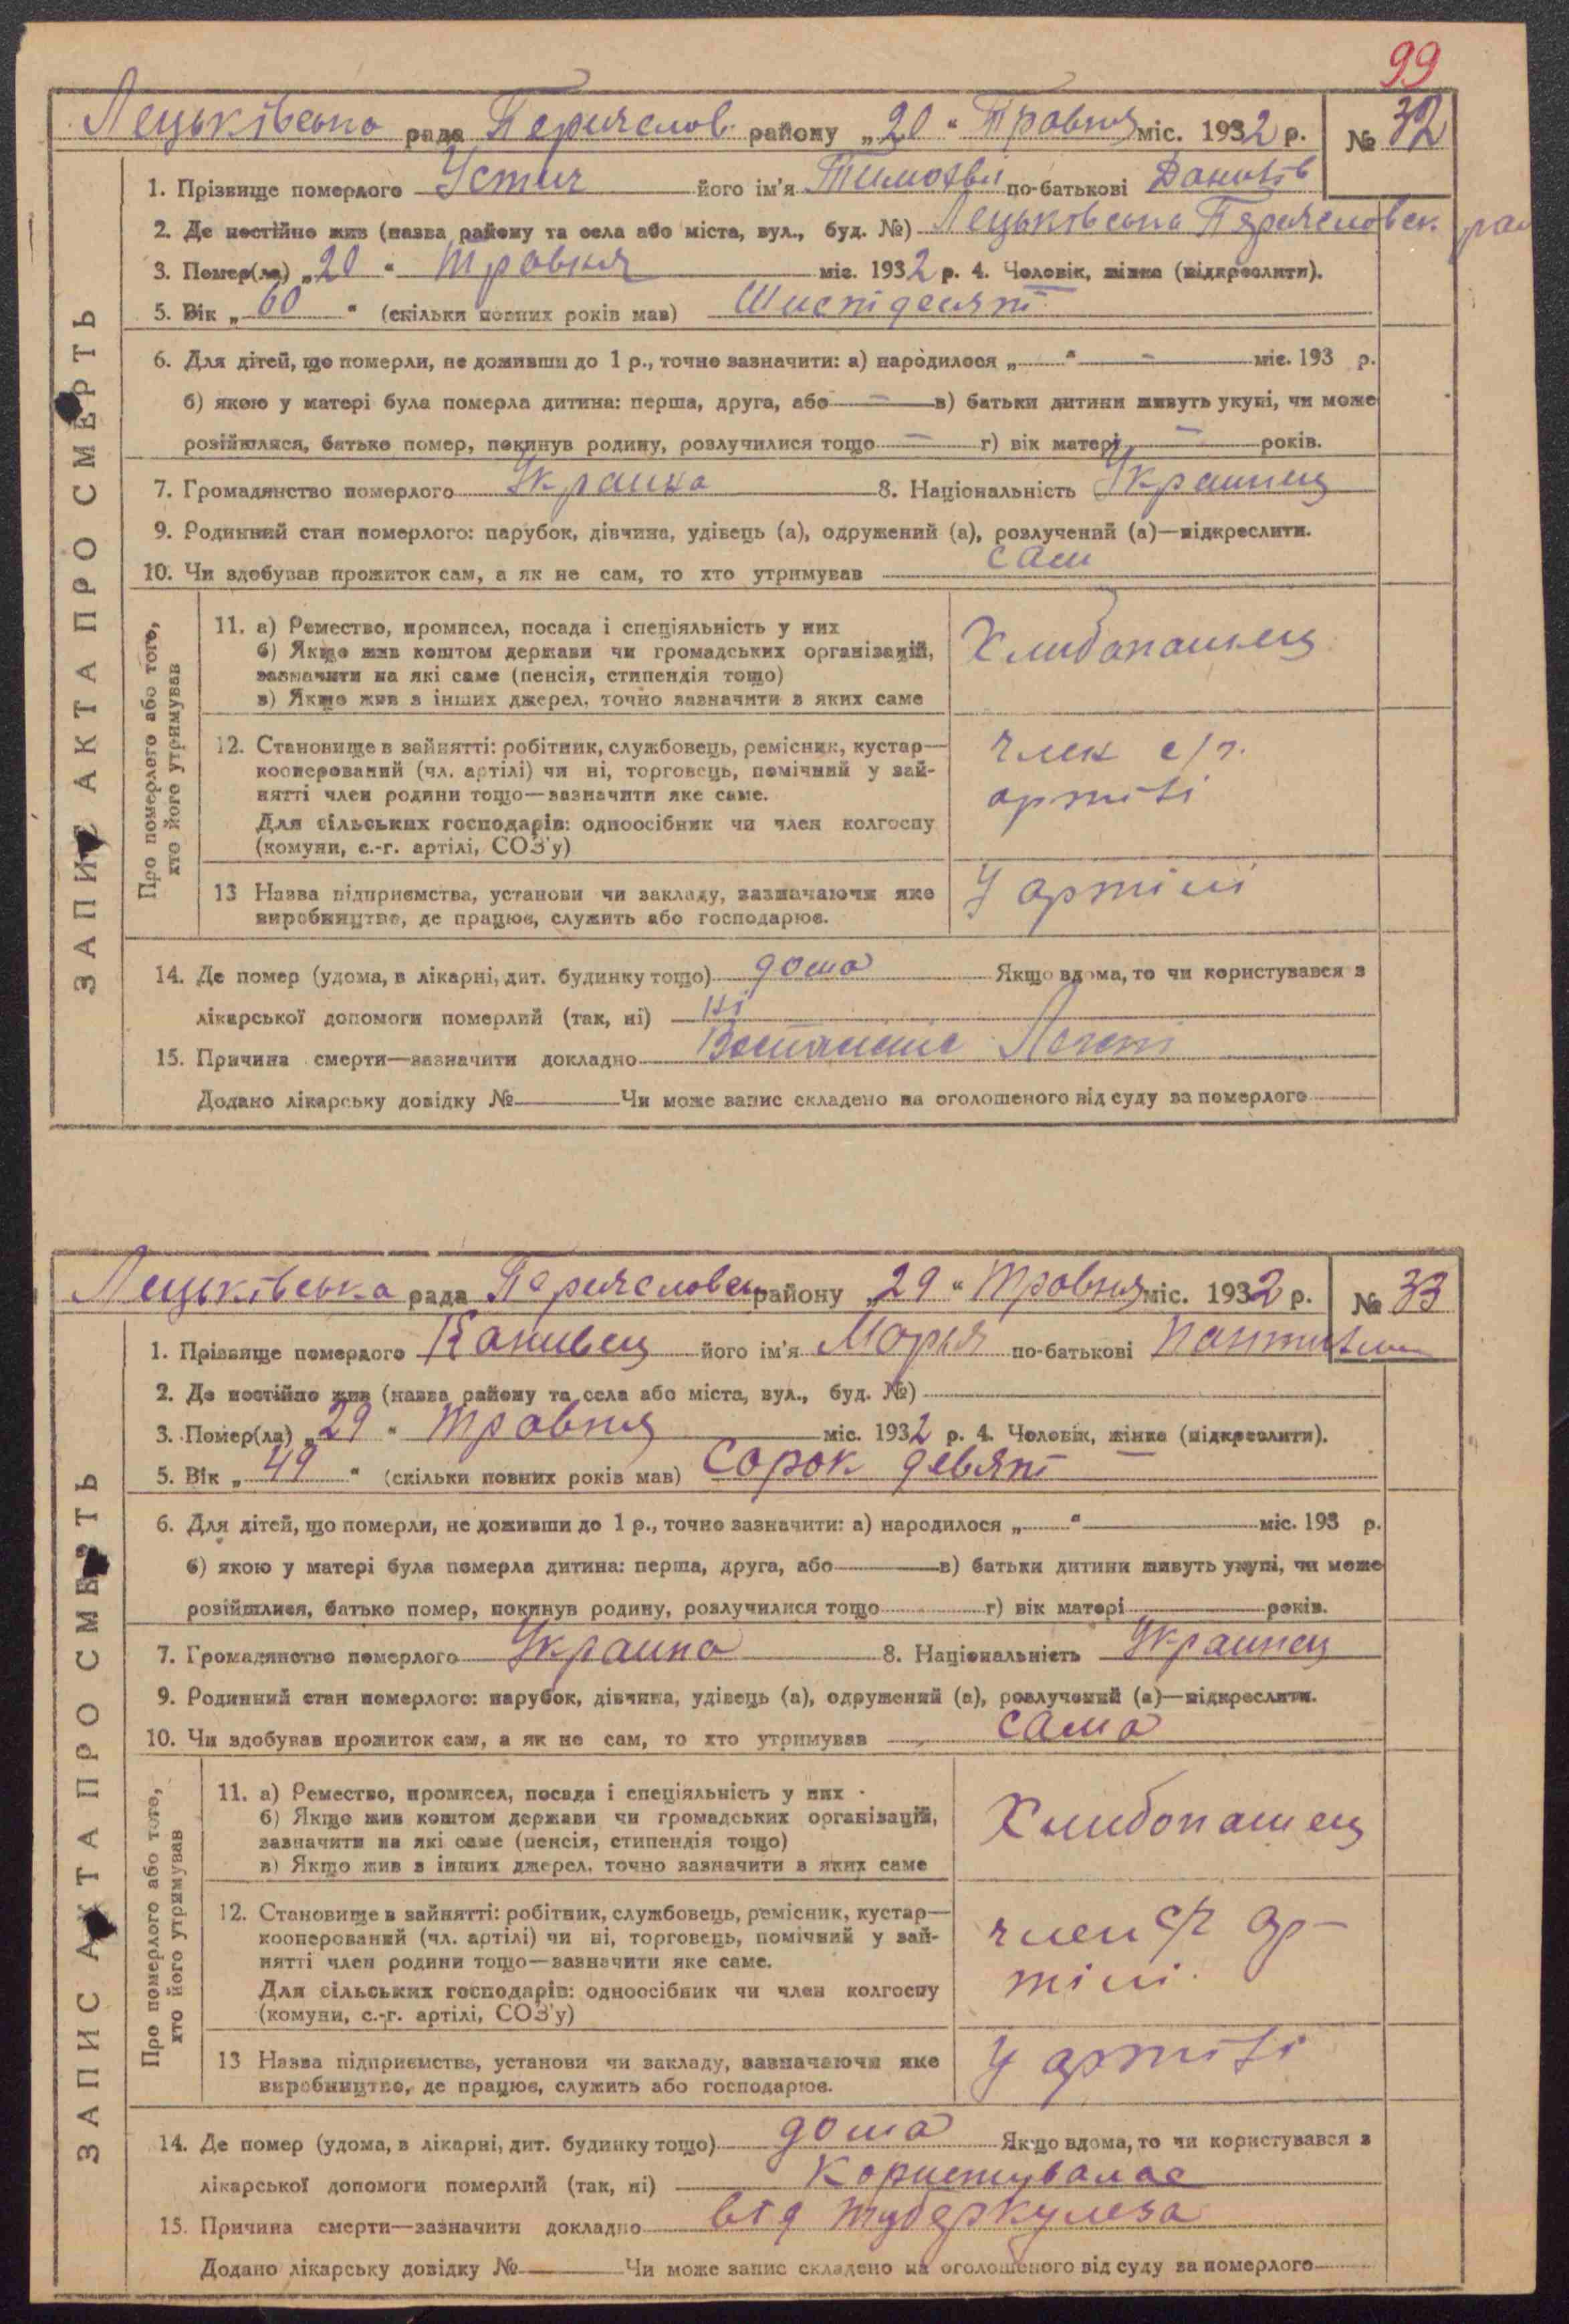 99
Лецьківська рада Переяслов. району „20“ Травня міс. 1932 р. № 32
1. Прізвище померлого Устич його ім'я Тимофій по-батькові Данилів
2. Де постійно жив (назва району та села або міста, вул., буд. №) Лецьківська Переясловск. рай
3. Помер(ла) „20“ травня міс. 1932 р. 4. Чоловік, жінка (підкреслити).
5. Вік „60“ (скільки повних років мав) Шистідесят
6. Для дітей, що померли, не доживши до 1 р., точно зазначити: а) народилося „ “ – міс. 193 р.
б) якою у матері була померла дитина: перша, друга, або – в) батьки дитини живуть укупі, чи може
розійшлися, батько помер, покинув родину, розлучилися тощо – г) вік матері – років.
7. Громадянство померлого Украина 8. Національність Украинец
9. Родинний стан померлого: парубок, дівчина, удівець (а), одружений (а), розлучений (а)—підкреслити.
10. Чи здобував прожиток сам, а як не сам, то хто утримував сам
ЗАПИС АКТА ПРО СМЕРТЬ
Про померлого або того,
хто його утримував
11. а) Ремество, промисел, посада і спеціяльність у них
б) Якщо жив коштом держави чи громадських організацій,
зазначити на які саме (пенсія, стипендія тощо)
в) Якщо жив з інших джерел, точно зазначити з яких саме
Хлибопашец
12. Становище в занятті: робітник, службовець, ремісник, кустар—
кооперований (чл. артілі) чи ні, торговець, помічний у зай-
нятті член родини тощо—зазначити яке саме.
Для сільських господарів: одноосібник чи член колгоспу
(комуни, с.-г. артілі, СОЗ'у)
член с/г.
артілі
13 Назва підприємства, установи чи закладу, зазначаючи яке
виробництво, де працює, служить або господарює.
У артілі
14. Де помер (удома, в лікарні, дит. будинку тощо) дома Якщо вдома, то чи користувався з
лікарської допомоги померлий (так, ні) ні
15. Причина смерти—зазначити докладно
Додано лікарську довідку № Чи може запис складено на оголошеного від суду за померлого
Лецьківська рада Переясловськ району „29“ травня міс. 1932 р. № 33
1. Прізвище померлого Канивец його ім'я Марья по-батькові
2. Де постійно жив (назва району та села або міста, вул., буд. №)
3. Помер(ла) „29“ травня міс. 1932 р. 4. Чоловік, жінка (підкреслити).
5. Вік „49“ (скільки повних років мав) Сорок девят
6. Для дітей, що померли, не доживши до 1 р., точно зазначити: а) народилося „ “ міс. 193 р.
б) якою у матері була померла дитина: перша, друга, або в) батьки дитини живуть укупі, чи може
розійшлися, батько помер, покинув родину, розлучилися тощо г) вік матері років.
7. Громадянство померлого Украина 8. Національність Украинец
9. Родинний стан померлого: парубок, дівчина, удівець (а), одружений (а), розлучений (а)—підкреслити.
10. Чи здобував прожиток сам, а як не сам, то хто утримував сама
ЗАПИС АКТА ПРО СМЕРТЬ
Про померлого або того,
хто його утримував
11. а) Ремество, промисел, посада і спеціяльність у них
б) Якщо жив коштом держави чи громадських організацій,
зазначити на які саме (пенсія, стипендія тощо)
в) Якщо жив з інших джерел, точно зазначити з яких саме
Хлибопашец
12. Становище в занятті: робітник, службовець, ремісник, кустар—
кооперований (чл. артілі) чи ні, торговець, помічний у зай-
нятті член родини тощо—зазначити яке саме.
Для сільських господарів: одноосібник чи член колгоспу
(комуни, с.-г. артілі, СОЗ'у)
член с/г ар-
тілі.
13 Назва підприємства, установи чи закладу, зазначаючи яке
виробництво, де працює, служить або господарює.
У артілі
14. Де помер (удома, в лікарні, дит. будинку тощо) дома Якщо вдома, то чи користувався з
лікарської допомоги померлий (так, ні) Користувалас
15. Причина смерти—зазначити докладно від туберкулеза
Додано лікарську довідку № Чи може запис складено на оголошеного від суду за померлого